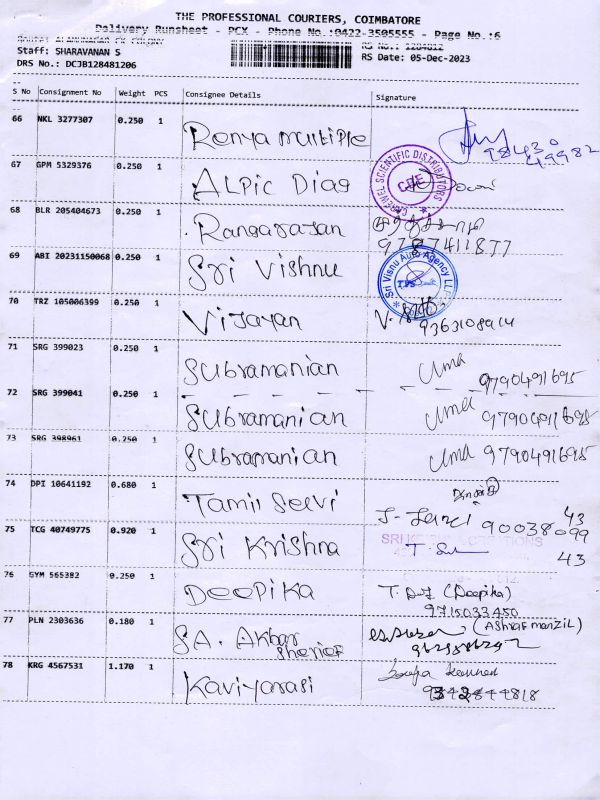 THE PROFESSIONAL COURIERS, COIMBATORE
Delivery Runsheet - PCX - Phone No.:0422-3505555 - Page No.:6
Staff: SHARAVANAN S RS No.: 1284812
DRS No.: DCJB128481206 RS Date: 05-Dec-2023
S No Consignment No Weight PCS Consignee Details Signature
66 NKL 3277307 0.250 1 Renya multiple 98430
49982
67 GPM 5329376 0.250 1 ALPIC Diag CAREWEL SCIENTIFIC DISTRIBUTORS
68 BLR 205404673 0.250 1 Rangarasan
9787411877
69 ABI 20231150068 0.250 1 Sri Vishnu Sri Visnu Auto Agency LLP
70 TRZ 105006399 0.250 1 Vijayan V.
9363108914
71 SRG 399023 0.250 1 Subramanian Uma 9790491695
72 SRG 399041 0.250 1 Subramanian Uma 9790491695
73 SRG 398961 0.250 1 Subramanian Uma 9790491695
74 DPI 10641192 0.680 1 Tamil Selvi 9003809943
75 TCG 40749775 0.920 1 Sri Krishna 43
76 GYM 565382 0.250 1 Deepika (Deepika)
9715033450
77 PLN 2303636 0.180 1 SA. Akbar (Ashraf manzil)
Sherief
78 KRG 4567531 1.170 1 Kaviyarasi